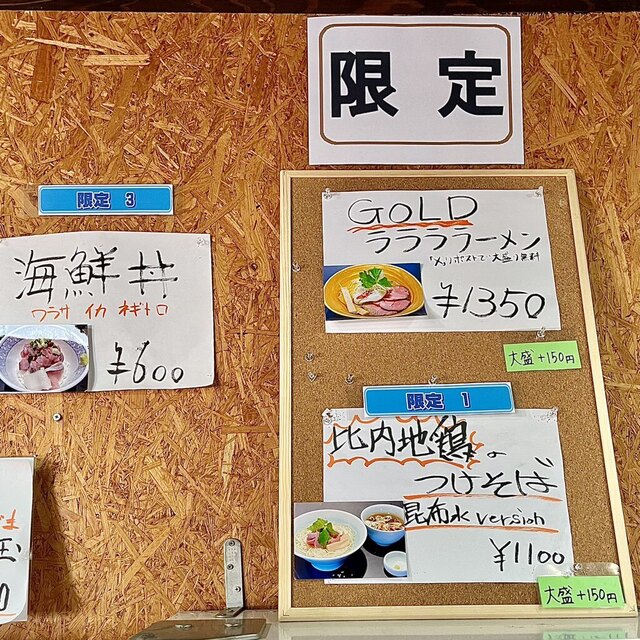 限定
限定 3
海鮮丼
ワラサ イカ ネギトロ
¥600
GOLD
ラララーメン
¥1350
大盛+150円
限定 1
比内地鶏の
つけそば
昆布水 version
¥1100
大盛+150円
ま
玉
0